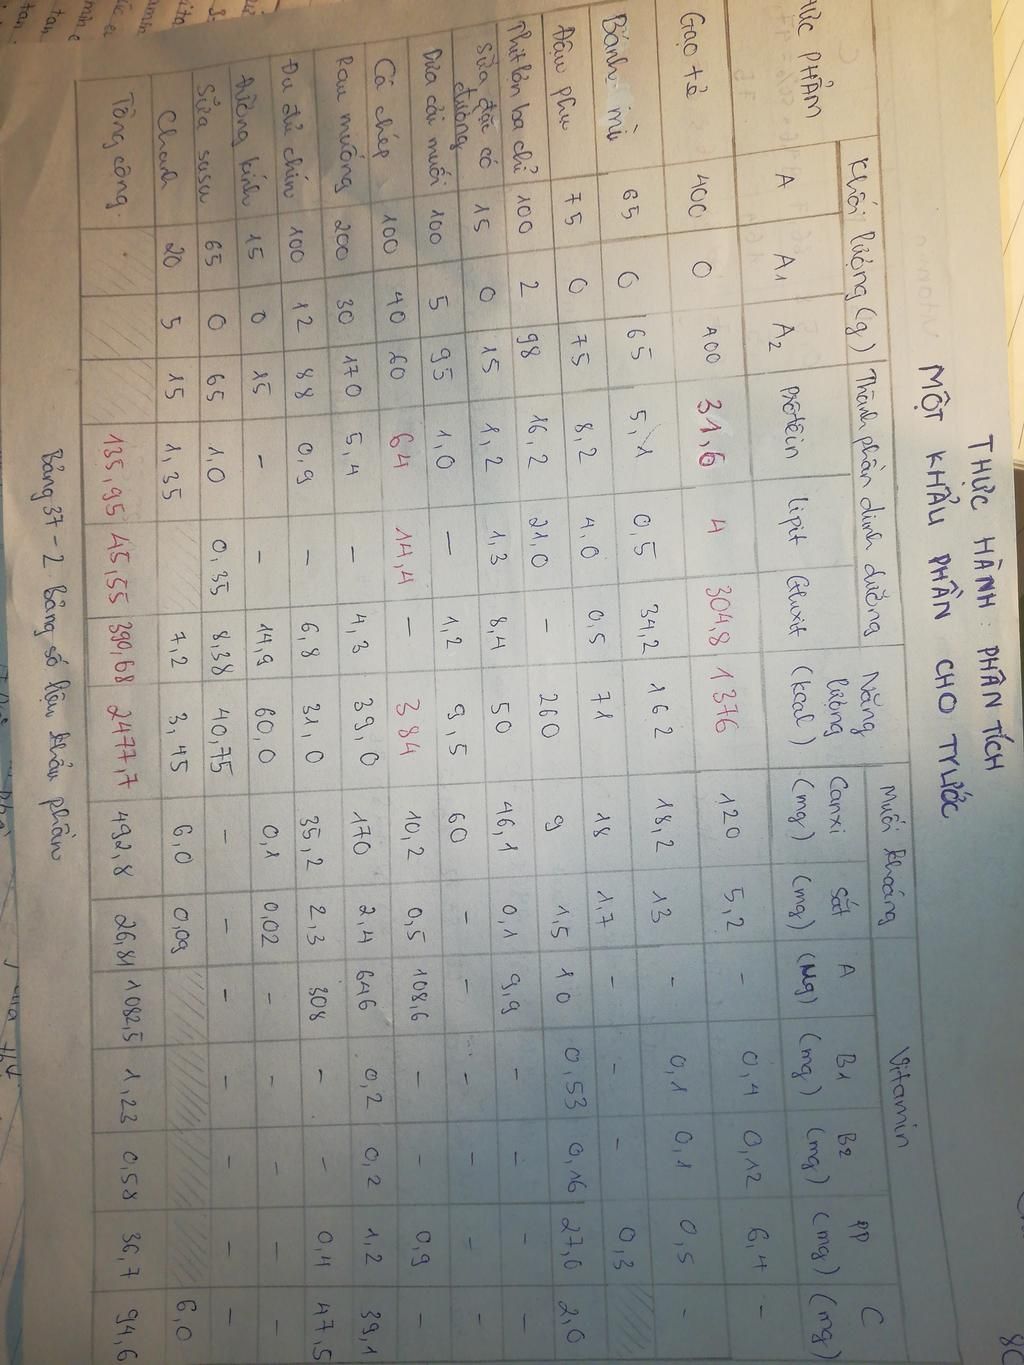 THỰC HÀNH : PHÂN TÍCH
MỘT KHẨU PHẦN CHO TRƯỚC
THỰC PHẨM | Khối lượng (g) | Thành phần dinh dưỡng | Năng lượng (kcal) | Muối khoáng | Vitamin
A | A1 | A2 | Prôtêin | Lipit | Gluxit | Canxi (mg) | Sắt (mg) | A (Mg) | B1 (mg) | B2 (mg) | PP (mg) | C (mg)
Gạo tẻ | 400 | 0 | 400 | 31,6 | 4 | 304,8 | 1376 | 120 | 5,2 | - | 0,4 | 0,12 | 6,4 | -
Bánh mì | 65 | 0 | 65 | 5,1 | 0,5 | 34,2 | 162 | 18,2 | 13 | - | 0,1 | 0,1 | 0,5 | -
Đậu phụ | 75 | 0 | 75 | 8,2 | 4,0 | 0,5 | 71 | 18 | 1,7 | - | - | - | 0,3
Thịt lợn ba chỉ | 100 | 2 | 98 | 16,2 | 21,0 | - | 260 | 9 | 1,5 | 10 | 0,53 | 0,16 | 27,0 | 2,0
Sữa đặc có đường | 15 | 0 | 15 | 1,2 | 1,3 | 8,4 | 50 | 46,1 | 0,1 | 9,9 | - | - | - | -
Dưa cải muối | 100 | 5 | 95 | 1,0 | - | 1,2 | 9,5 | 60 | - | - | - | - | - | -
Cá chép | 100 | 40 | 60 | 64 | 14,4 | - | 384 | 10,2 | 0,5 | 108,6 | - | - | 0,9 | -
Rau muống | 200 | 30 | 170 | 5,4 | - | 4,3 | 39,0 | 170 | 2,4 | 646 | 0,2 | 0,2 | 1,2 | 39,1
Đu đủ chín | 100 | 12 | 88 | 0,9 | - | 6,8 | 31,0 | 35,2 | 2,3 | 308 | - | - | 0,4 | 47,5
Đường kính | 15 | 0 | 15 | - | - | 14,9 | 60,0 | 0,1 | 0,02 | - | - | - | - | -
Sữa susu | 65 | 0 | 65 | 1,0 | 0,35 | 8,38 | 40,75 | - | - | - | - | - | - | -
Chanh | 20 | 5 | 15 | 1,35 | 7,2 | 3,45 | 6,0 | 0,09 | 6,0
Tổng cộng. | 135,95 | 45,55 | 390,68 | 2477,7 | 492,8 | 26,81 | 1082,5 | 1,23 | 0,58 | 36,7 | 94,6
Bảng 37-2 Bảng số liệu khẩu phần